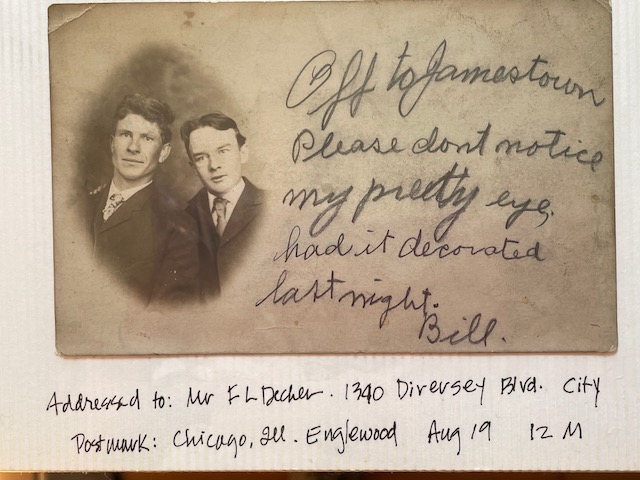 Off to Jamestown
Please dont notice
my pretty eye,
had it decorated
last night.
Bill.
Addressed to: Mr F L Decker. 1340 Diversey Blvd. City
Postmark: Chicago, Ill. Englewood Aug 19 12 M